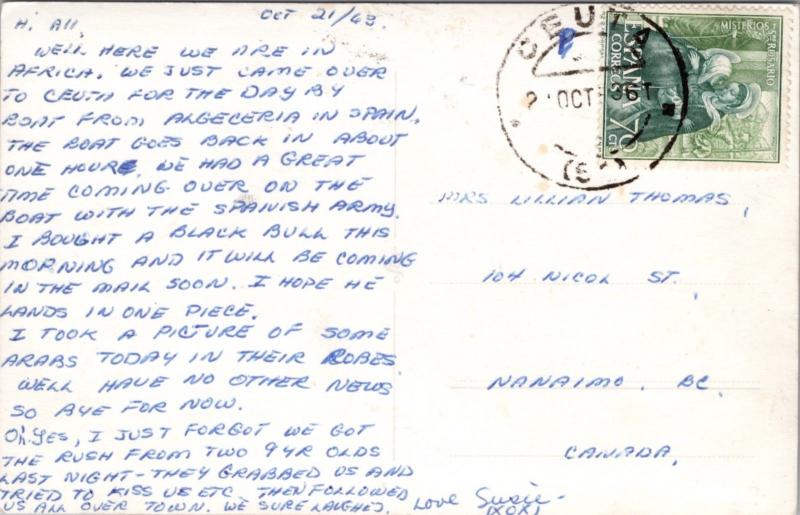 Oct 21/63.
Hi All,
WELL HERE WE ARE IN
AFRICA. WE JUST CAME OVER
TO CEUTA FOR THE DAY BY
BOAT FROM ALGECERIA IN SPAIN,
THE BOAT GOES BACK IN ABOUT
ONE HOUR. WE HAD A GREAT
TIME COMING OVER ON THE
BOAT WITH THE SPANISH ARMY.
I BOUGHT A BLACK BULL THIS
MORNING AND IT WILL BE COMING
IN THE MAIL SOON. I HOPE HE
LANDS IN ONE PIECE.
I TOOK A PICTURE OF SOME
ARABS TODAY IN THEIR ROBES.
WELL HAVE NO OTHER NEWS
SO BYE FOR NOW.
Oh. YES, I JUST FORGOT WE GOT
THE RUSH FROM TWO 9 YR OLDS
LAST NIGHT - THEY GRABBED US AND
TRIED TO KISS US ETC. THEN FOLLOWED
US ALL OVER TOWN. WE SURE LAUGHED.
Love Susie -
(XOX)
CEUTA
OCT
MISTERIOS
DEL
ROSARIO
ESPAÑA
CORREOS
70
CTS
MRS LILLIAN THOMAS,
104 NICOL ST.
NANAIMO, BC.
CANADA,